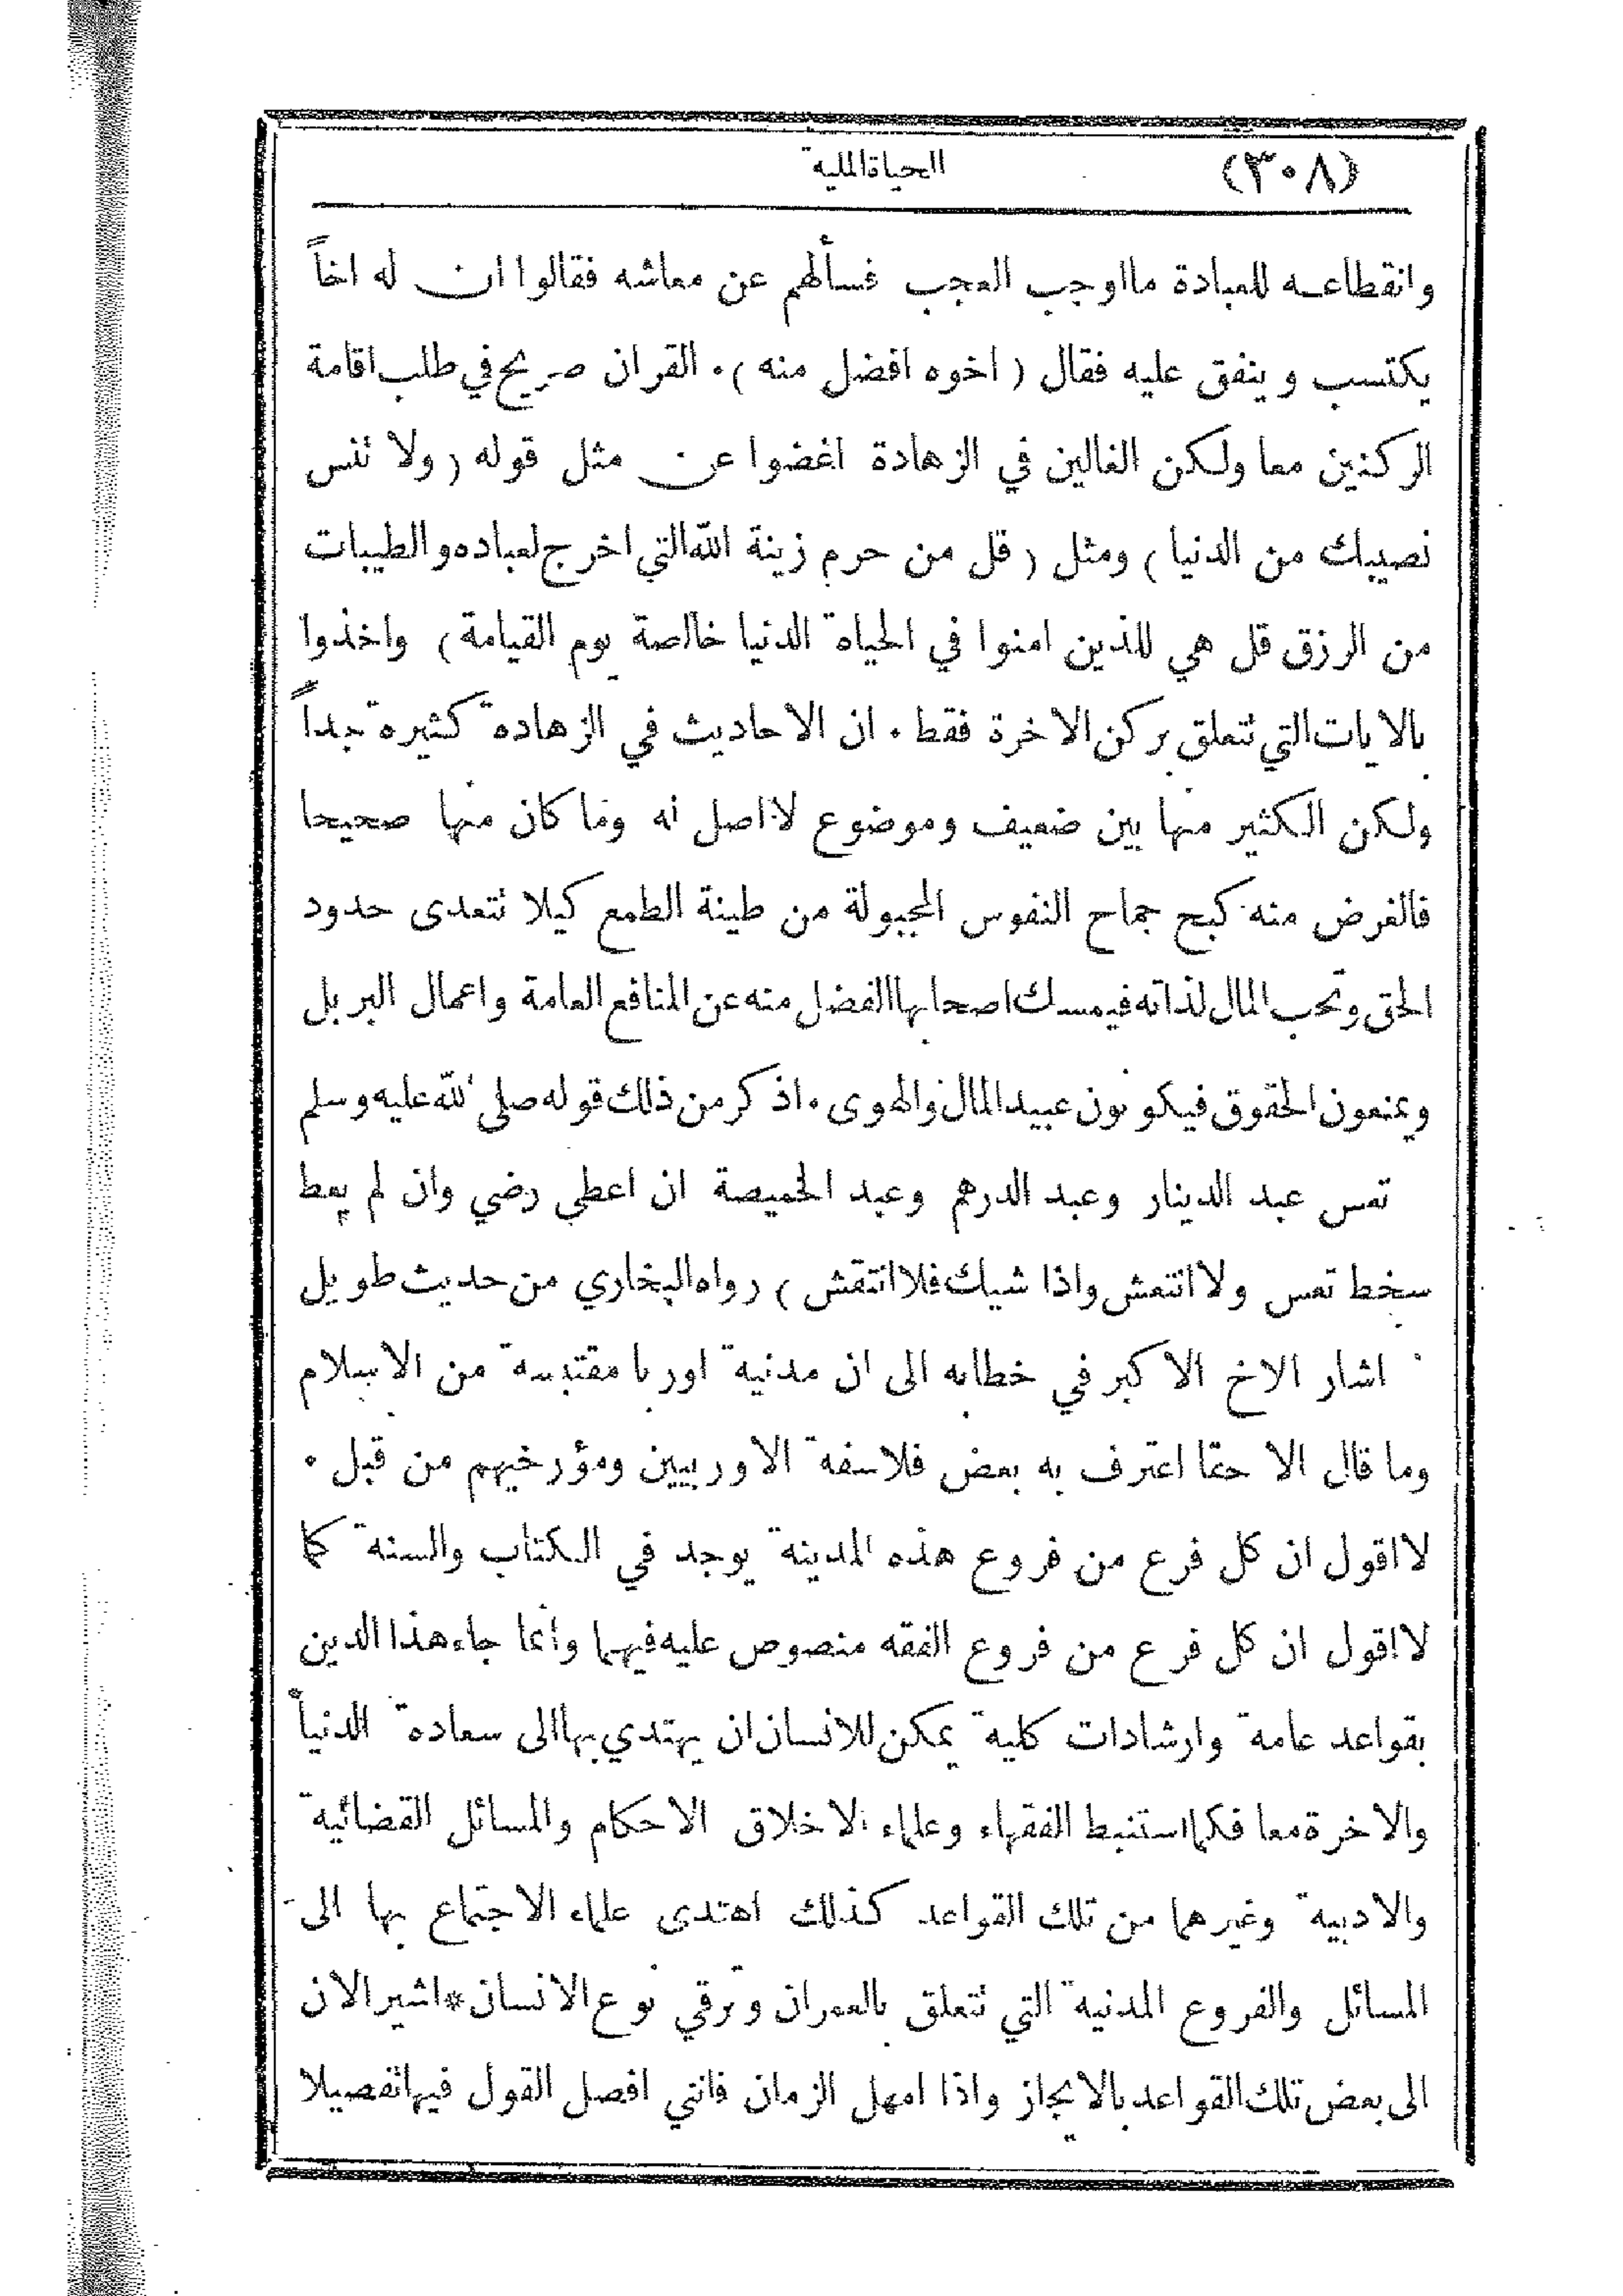 (٣٠٨) الحياة الملية
وانقطاعه للعبادة ما اوجب العجب فسألهم عن معاشه فقالوا ان له اخاً
يكتسب وينفق عليه فقال ( اخوه افضل منه ) . القران صريح في طلب اقامة
الركنين معا ولكن الغالين في الزهادة اغضوا عن مثل قوله ( ولا تنس
نصيبك من الدنيا ) ومثل ( قل من حرم زينة الله التي اخرج لعباده والطيبات
من الرزق قل هي للذين امنوا في الحياة الدنيا خالصة يوم القيامة ) واخذوا
بالايات التي تتعلق بركن الاخرة فقط . ان الاحاديث في الزهادة كثيرة جداً
ولكن الكثير منها بين ضعيف وموضوع لا اصل له وما كان منها صحيحا
فالغرض منه كبح جماح النفوس المجبولة من طينة الطمع كيلا تتعدى حدود
الحق وتحب المال لذاته فيمسك اصحابها الفضل منه عن المنافع العامة واعمال البر بل
ويمنعون الحقوق فيكونون عبيد المال والهوى . اذكر من ذلك قوله صلى الله عليه وسلم
تعس عبد الدينار وعبد الدرهم وعبد الخميصة ان اعطي رضي وان لم يعط
سخط تعس ولا انتعش واذا شيك فلا انتقش ) رواه البخاري من حديث طويل
اشار الاخ الاكبر في خطابه الى ان مدنية اوربا مقتبسة من الاسلام
وما قال الا حقا اعترف به بعض فلاسفة الاوربيين ومؤرخيهم من قبل .
لا اقول ان كل فرع من فروع هذه المدينة يوجد في الكتاب والسنة كما
لا اقول ان كل فرع من فروع الفقه منصوص عليه فيهما وانما جاء هذا الدين
بقواعد عامة وارشادات كلية يمكن للانسان ان يهتدي بها الى سعادة الدنيا
والاخرة معا فكما استنبط الفقهاء وعلماء الاخلاق الاحكام والمسائل القضائية
والادبية وغيرهما من تلك القواعد كذلك اهتدى علماء الاجتماع بها الى
المسائل والفروع المدنية التي تتعلق بالعمران وترقي نوع الانسان * اشير الان
الى بعض تلك القواعد بالايجاز واذا امهل الزمان فانني افصل القول فيها تفصيلا